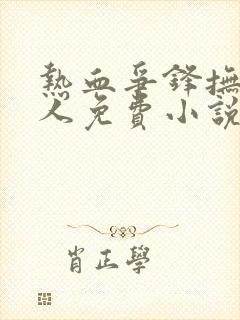 熱血爭鋒撫
人免費小說
肖正學